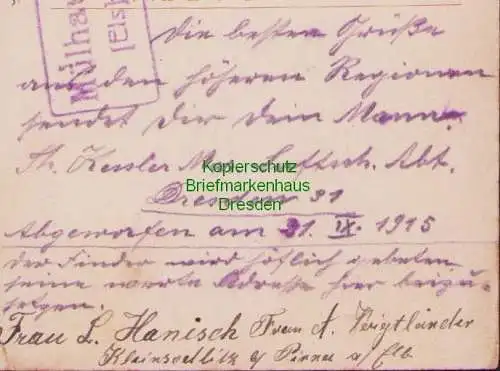 Mülhau
[Els
Die besten Grüße
aus den höheren Regionen
sendet Dir Dein Mann.
Th. Kessler Luftsch. Abt.
Dresden 31
Abgeworfen am 31. IX. 1915
Der Finder wird höflich gebeten
seine werte Adresse hier beizu-
fügen.
Frau L. Hanisch Frau A. Voigtländer
Kleinsedlitz b/ Pirna a/ Elb
Kopierschutz
Briefmarkenhaus
Dresden